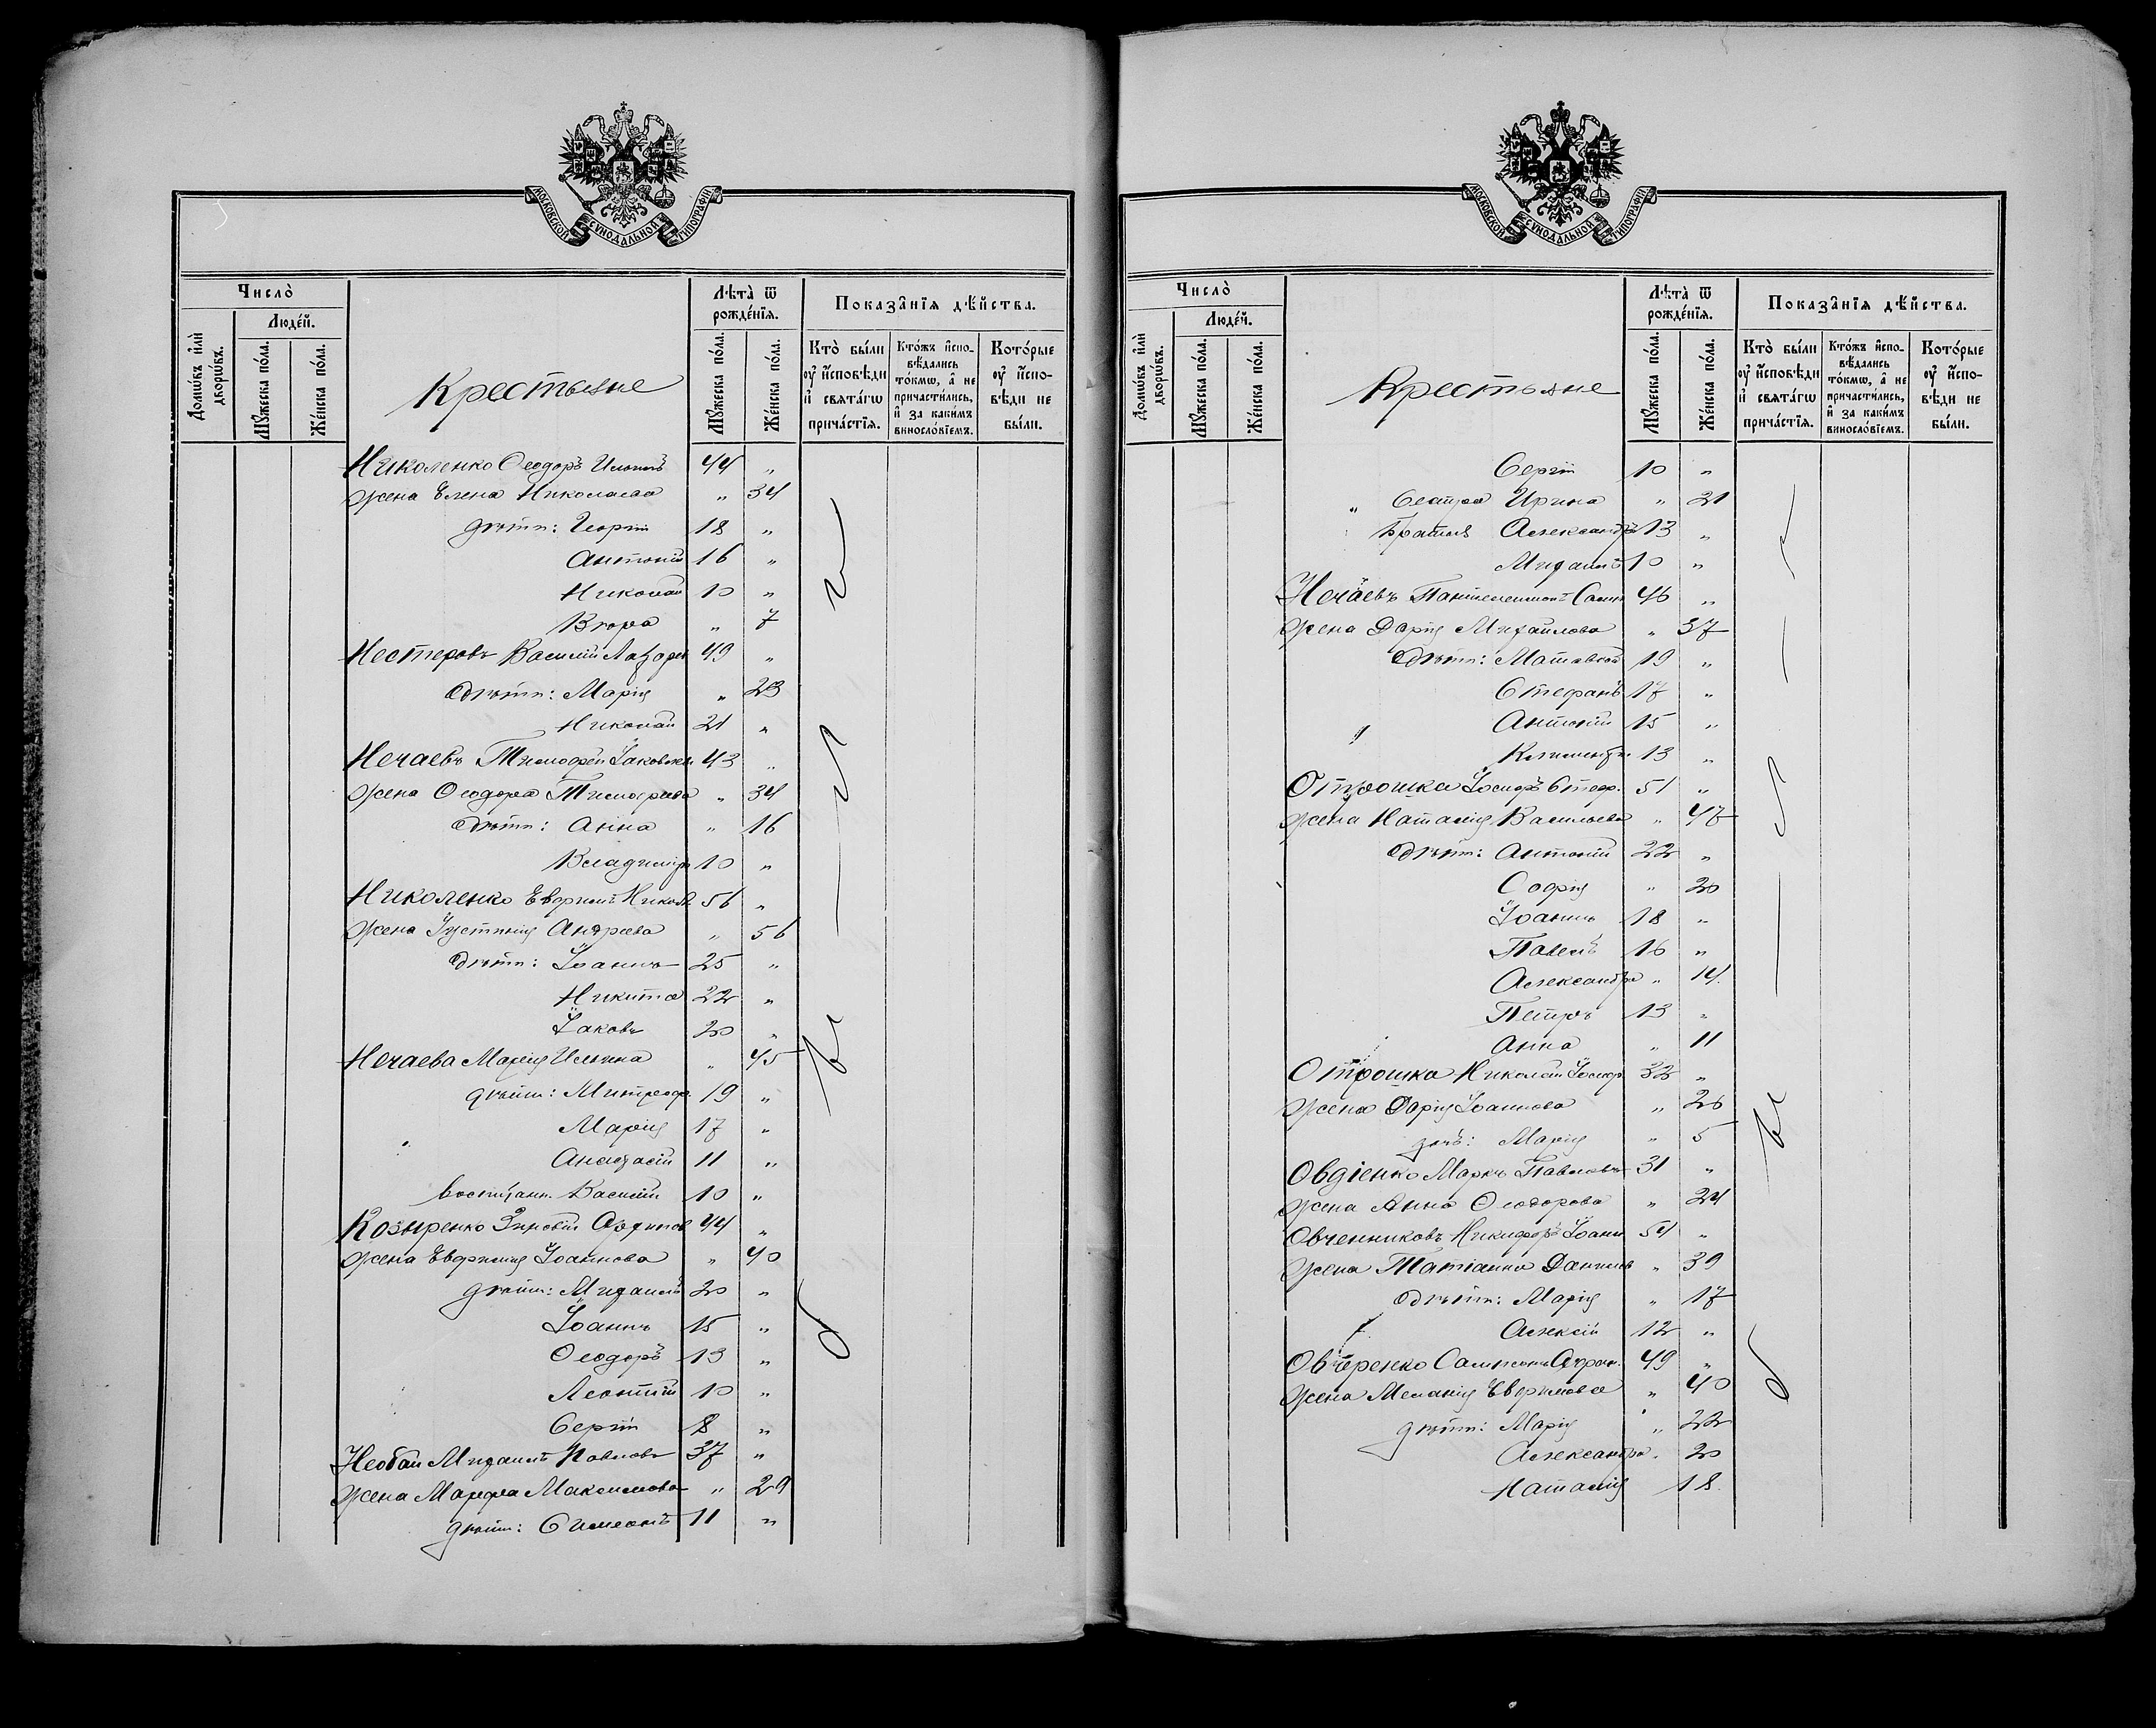 МОСКОВСКОЙ СѴНОДАЛЬНОЙ ТИПОГРАФІИ
Число̀
Домѡ́въ и҆лѝ дворѡ́въ.
Люде́й.
Мꙋ́жеска по́ла.
Же́нска по́ла.
Крестьяне
Лѣ́та ѿ рожде́нїѧ.
Мꙋ́жеска по́ла.
Же́нска по́ла.
Показа̑нїѧ дѣ́йства.
Кто̀ бы́ли ᲂу҆ и҆сповѣ́ди и҆ свѧта́гѡ прича́стїѧ.
Кто́жъ и҆сповѣ́дались то́кмѡ, а҆ не причасти́лись, и҆ за каки́мъ винослО́вїемъ.
Кото́рые ᲂу҆ и҆сповѣ́ди не бы́ли.
Николенко Ѳеодоръ Ильинъ 44 "
Жена Елена Николаева " 34
дѣти: Георгій 18 "
Антоній 16 "
Николай 10 "
Вѣра " 7
Нестеровъ Василій Лазарев 49 "
дѣти: Марія " 23
Николай 21 "
Нечаевъ Тимофей Іаковлев. 43 "
Жена Ѳеодора Тимоѳеева " 34
дѣти: Анна " 16
Владиміръ 10 "
Николенко Евфимъ Никол. 56 "
Жена Іустинія Андреева " 56
дѣти: Іоаннъ 25 "
Никита 22 "
Іаковъ 20 "
Нечаева Марія Ильина " 45
дѣти: Митроф. 19 "
Марія 17 "
Анастасій 11 "
воспитанн. Василій 10 "
Козыренко Зиновій 44 "
Жена Евфимія Іоаннова " 40
дѣти: Михаилъ 20 "
Іоаннъ 15 "
Ѳеодоръ 13 "
Леонтій 10 "
Сергій 8 "
Михаилъ Павловъ 37 "
Жена Марфа Максимова " 29
дѣти: Симеонъ 11 "
МОСКОВСКОЙ СѴНОДАЛЬНОЙ ТИПОГРАФІИ
Число̀
Домѡ́въ и҆лѝ дворѡ́въ.
Люде́й.
Мꙋ́жеска по́ла.
Же́нска по́ла.
Крестьяне
Лѣ́та ѿ рожде́нїѧ.
Мꙋ́жеска по́ла.
Же́нска по́ла.
Показа̑нїѧ дѣ́йства.
Кто̀ бы́ли ᲂу҆ и҆сповѣ́ди и҆ свѧта́гѡ прича́стїѧ.
Кто́жъ и҆сповѣ́дались то́кмѡ, а҆ не причасти́лись, и҆ за каки́мъ винослО́вїемъ.
Кото́рые ᲂу҆ и҆сповѣ́ди не бы́ли.
Сергій 10 "
" Сестра Ирина " 21
Братья Александръ 13 "
Михаилъ 10 "
Нечаевъ Пантелеимонъ 46 "
Жена Дарія Михайлова " 37
дѣти: Матѳей 19 "
Стефанъ 17 "
Антоній 15 "
Климентъ 13 "
Отрошка Іосифъ Стеф. 51 "
Жена Наталія Васильева " 47
дѣти: Антоній 22 "
Софія " 20
Іоаннъ 18 "
Павелъ 16 "
Александра " 14.
Петръ 13 "
Анна " 11
Отрошка Николай Іосиф. 32 "
Жена Дарія Іоаннова " 26
дочь: Марія " 5
Овдіенко Маркъ Павловъ 31 "
Жена Анна Ѳеодорова " 24
Овченниковъ Никифоръ Іоанн 54 "
Жена Татіанна Данилов " 39
дѣти: Марія " 17
Алексій 12 "
Овчеренко Сампсонъ 49 "
Жена Меланія Евфимова " 40
дѣти: Марія " 22
Александра " 20
Наталія 18.